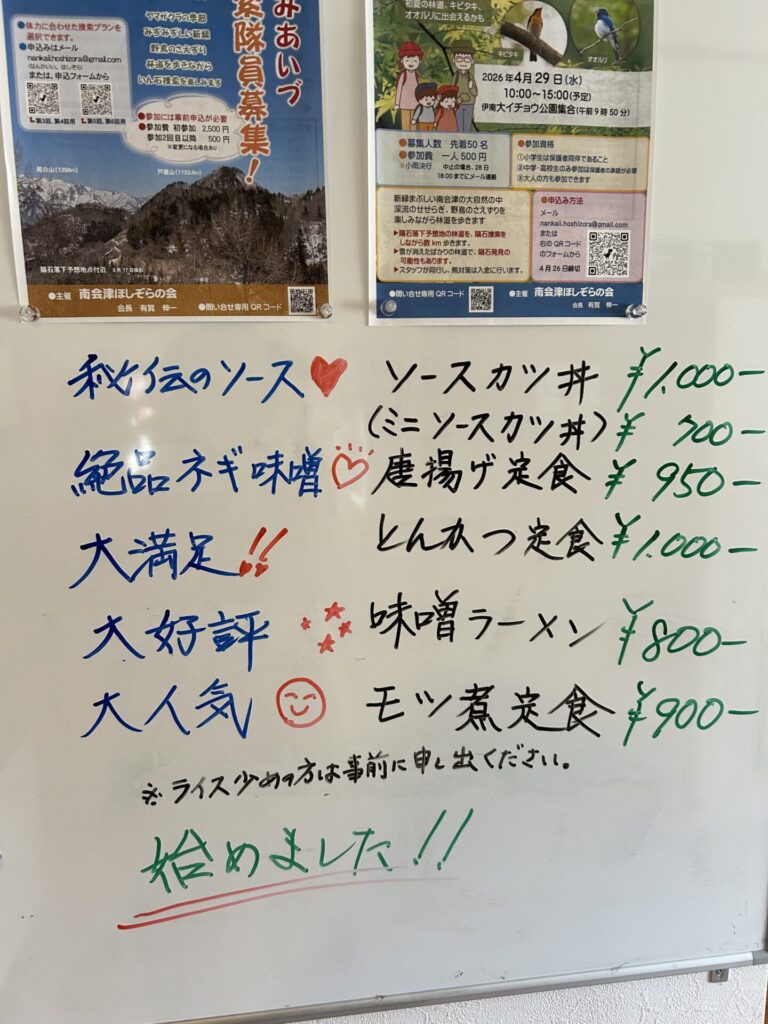 みあいづ
索隊員募集！
ヤマザクラの季節
みずみずしい新緑
野鳥のさえずり
林道を歩きながら
いん石捜索を楽しみます
●体力に合わせた捜索プランを
選択できます。
●申込みはメール
nankaii.hoshizora@gmail.com
(なんかいい．ほしぞら)
または、申込フォームから
第3回、第4回用
第5回、第6回用
●参加には事前申込が必要
●参加費 初参加 2,500円
参加2回目以降 500円
※変更になる場合あり
尾白山(1398m)
戸屋山(1133.9m)
隕石落下予想地点付近
●主催 南会津ほしぞらの会
会長 有賀 伸一
●問い合せ専用QRコード
初夏の林道、キビタキ、
オオルリに出会えるかも
キビタキ
オオルリ
2026年4月29日(水)
10:00〜15:00(予定)
伊南大イチョウ公園集合(午前9時50分)
●募集人数 先着50名
●参加費 一人500円
※小雨決行 中止の場合、28日
18:00までにメール連絡
●参加資格
①小学生は保護者同伴であること
②中学・高校生のみ参加は保護者の承諾が必要
③大人の方も参加できます
新緑まぶしい南会津の大自然の中
渓流のせせらぎ、野鳥のさえずりを
楽しみながら林道を歩きます
▶隕石落下予想地の林道を、隕石捜索を
しながら数km歩きます。
▶雪が消えたばかりの林道で、隕石発見の
可能性もあります。
▶スタッフが同行し、熊対策は入念に行います。
●申込み方法
メール
nankaii.hoshizora@gmail.com
または
右のQRコード
のフォームから
4月26日締切
●問い合せ専用QRコード
●主催 南会津ほしぞらの会
会長 有賀 伸一
秘伝のソース♥ ソースカツ丼 ¥1.000-
(ミニソースカツ丼) ¥700-
絶品ネギ味噌♡ 唐揚げ定食 ¥950-
大満足!! とんかつ定食 ¥1.000-
大好評 味噌ラーメン ¥800-
大人気 モツ煮定食 ¥900-
※ライス少めの方は事前に申し出ください。
始めました!!